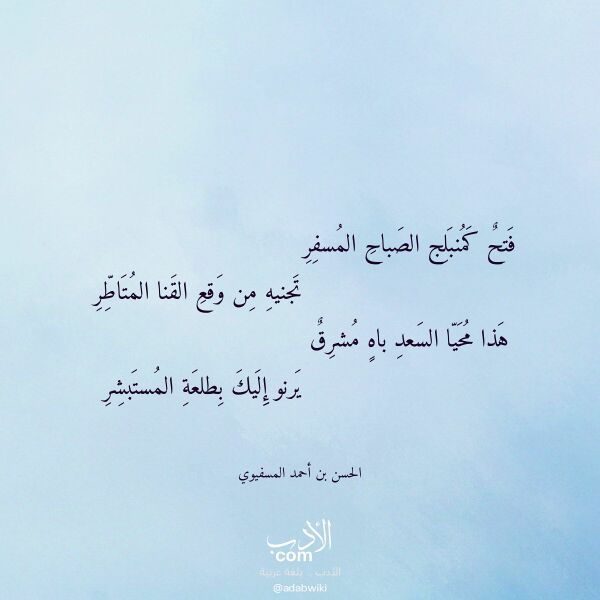 فَتحٌ كَمُنبَلَج الصَباحِ المُسفِرِ
تَجنيهِ مِن وَقعِ القَنا المُتَاطِّرِ
هَذا مُحَيّا السَعدِ باهٍ مُشرِقٌ
يَرنو إِلَيكَ بِطلعَةِ المُستَبشِرِ
الحسن بن أحمد المسفيوي
الأدب
com
الأدب .. بلغة عربية
@adabwiki